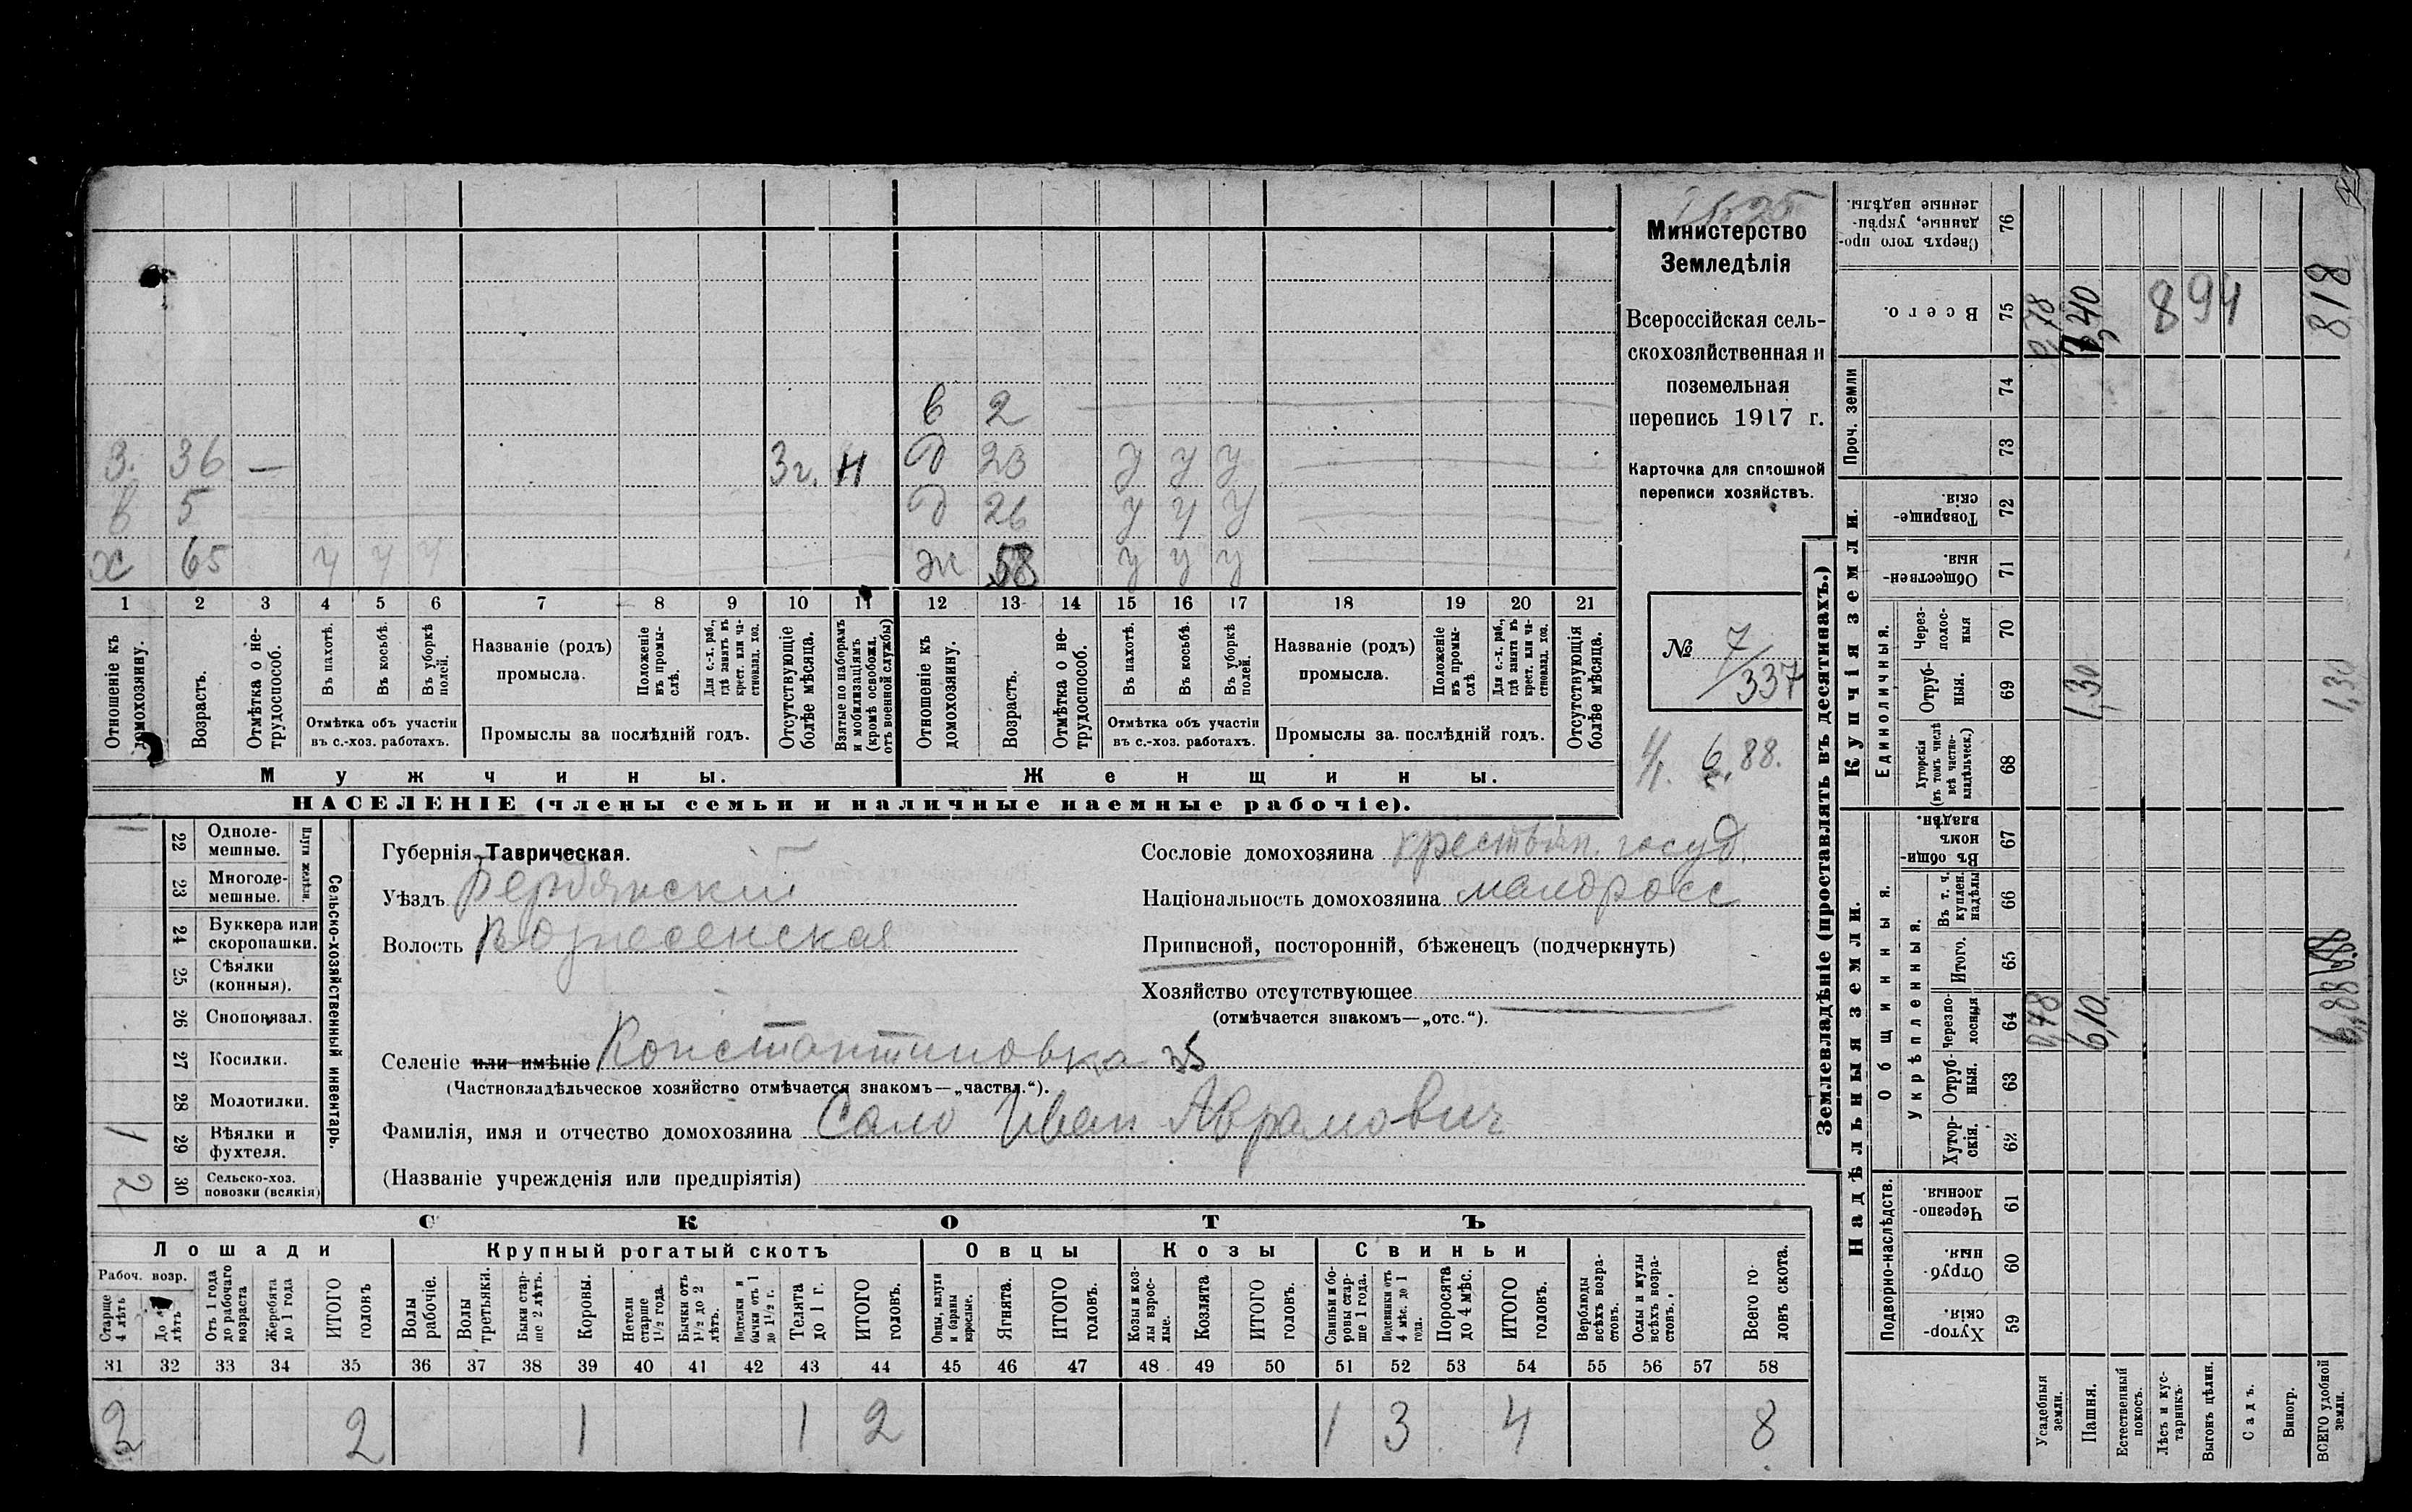 Министерство
Земледѣлія
Всероссійская сель-
скохозяйственная и
поземельная
перепись 1917 г.
Карточка для сплошной
переписи хозяйствъ.
№ 7/337
4. 6,88.
в 2
З. 36 — 3г. Н д 23 у у у
в 5 д 26 у у у
х 65 у у у ж 58 у у у
1 2 3 4 5 6 7 8 9 10 11 12 13 14 15 16 17 18 19 20 21
Отношеніе къ домохозяину.
Возрастъ.
Отмѣтка о не-трудоспособ.
Въ пахотѣ.
Въ косьбѣ.
Въ уборкѣ полей.
Отмѣтка объ участіи въ с.-хоз. работахъ.
Названіе (родъ) промысла.
Положеніе въ промы-слѣ.
Для с.-х. раб., гдѣ занятъ въ крест. или ча-стновлад. хоз.
Промыслы за послѣдній годъ.
Отсутствующіе болѣе мѣсяца.
Взятые по наборамъ и мобилизаціямъ (кромѣ освобожд. отъ военной службы)
Отношеніе къ домохозяину.
Возрастъ.
Отмѣтка о не-трудоспособ.
Въ пахотѣ.
Въ косьбѣ.
Въ уборкѣ полей.
Отмѣтка объ участіи въ с.-хоз. работахъ.
Названіе (родъ) промысла.
Положеніе въ промы-слѣ.
Для с.-х. раб., гдѣ занята въ крест. или ча-стновлад. хоз.
Промыслы за послѣдній годъ.
Отсутствующія болѣе мѣсяца.
Мужчины. Женщины.
НАСЕЛЕНІЕ (члены семьи и наличные наемные рабочіе).
Сельско-хозяйственный инвентарь.
Плуги желѣзн.
22 Одноле-мешные.
23 Многоле-мешные.
24 Буккера или скоропашки.
25 Сѣялки (конныя).
26 Сноповязал.
27 Косилки.
28 Молотилки.
1 29 Вѣялки и фухтеля.
2 30 Сельско-хоз. повозки (всякія)
Губернія Таврическая.
Уѣздъ Бердянскій
Волость Вознесенская
Селеніе или имѣніе Константиновка
(Частновладѣльческое хозяйство отмѣчается знакомъ—„частвл.“).
Фамилія, имя и отчество домохозяина Сало Иван Аврамович
(Названіе учрежденія или предпріятія)
Сословіе домохозяина крестьян. госуд.
Національность домохозяина малоросс
Приписной, посторонній, бѣженецъ (подчеркнуть)
Хозяйство отсутствующее
(отмѣчается знакомъ—„отс.“).
СКОТЪ
Лошади Крупный рогатый скотъ Овцы Козы Свиньи
Рабоч. возр.
Старше 4 лѣтъ
До 4 лѣтъ
Отъ 1 года до рабочаго возраста
Жеребята до 1 года
ИТОГО головъ
Волы рабочіе.
Волы третьяки.
Быки стар-ше 2 лѣтъ.
Коровы.
Нетели старше 1½ года.
Бычки отъ 1½ до 2 лѣтъ.
Подтелки и бычки отъ 1 до 1½ г.
Телята до 1 г.
ИТОГО головъ.
Овцы, валухи и бараны взрослые.
Ягнята.
ИТОГО головъ.
Козы и коз-лы взрос-лые.
Козлята
ИТОГО головъ.
Свиньи и бо-ровы стар-ше 1 года.
Подсвинки отъ 4 мѣс. до 1 года.
Поросята до 4 мѣс.
ИТОГО головъ.
Верблюды всѣхъ возра-стовъ.
Ослы и мулы всѣхъ возра-стовъ.
Всего го-ловъ скота.
31 32 33 34 35 36 37 38 39 40 41 42 43 44 45 46 47 48 49 50 51 52 53 54 55 56 57 58
2 2 1 1 2 1 3 4 8
Землевладѣніе (проставлять въ десятинахъ.)
Купчія земли.
Надѣльныя земли.
Сверхъ того про-данные, укрѣп-ленные надѣлы. 76
Всего. 75 0,78 7,40 894 818
Проч. земли 74
73
Товарище-скія. 72
Обществен-ныя. 71
Единоличныя.
Через-полос-ныя 70
Отруб-ныя. 69 1,30 1,30
Хуторскія (въ томъ числѣ всѣ частно-владѣльческ.) 68
Общинныя.
Въ общи-номъ владѣн. 67
Укрѣпленныя.
Въ т. ч. куплен. надѣлы 66
Итого. 65 6,88
Черезпо-лосныя 64 0,78 6,10. 6,88
Отруб-ныя. 63
Хутор-скія. 62
Подворно-наслѣдств.
Черезпо-лосныя. 61
Отруб-ныя. 60
Хутор-скія. 59
Усадебныя земли.
Пашня.
Естественный покосъ.
Лѣсъ и кус-тарникъ.
Выгонъ цѣлин.
Садъ.
Виногр.
ВСЕГО удобной земли.